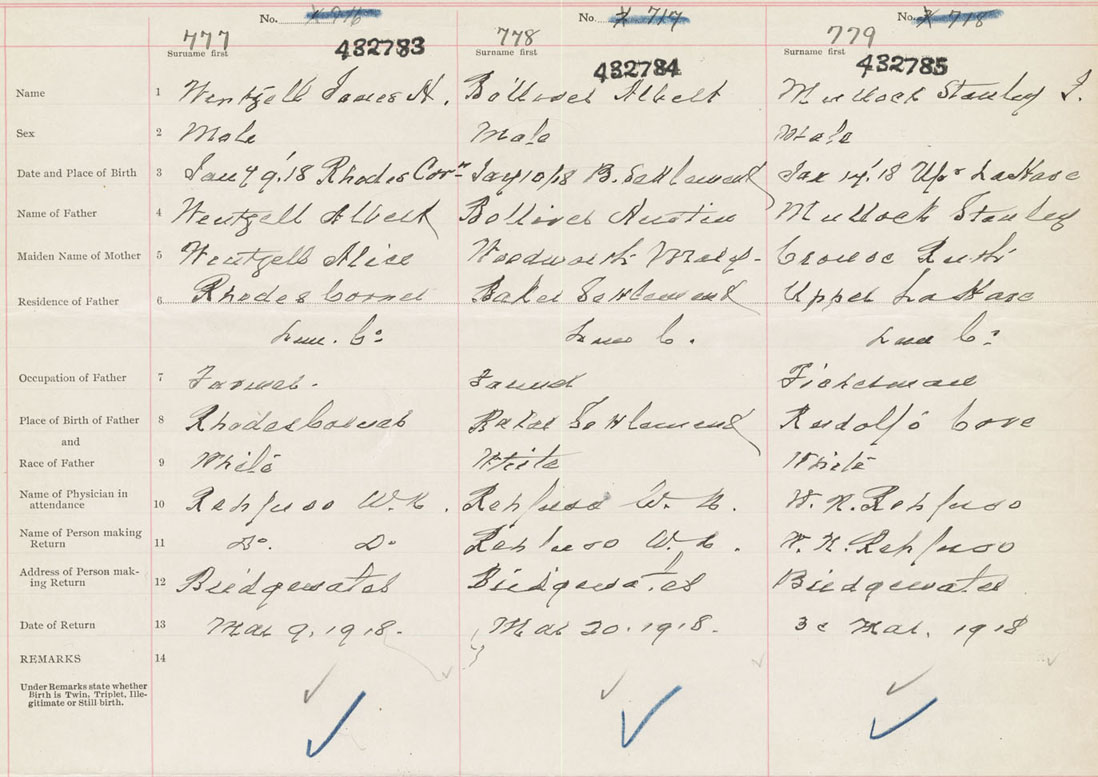 No. No. No.
777 778 779
Surname first Surname first Surname first
432783 432784 432785
Name 1 Wentzell James H. Bolliver Albert Mullock Stanley
Sex 2 Male Male Male
Date and Place of Birth 3 Jany 9.'18 Rhodes Corn Jany 10/18 B. Settlement Jan 14.'18 Upr LaHave
Name of Father 4 Wentzell Albert Bolliver Austin Mullock Stanley
Maiden Name of Mother 5 Wentzell Alice Woodworth Mary Crouse Ruth
Residence of Father 6 Rhodes Corner Baker Settlement Upper LaHave
Lun. Co Lun C. Lun Co
Occupation of Father 7 Farmer. Farmer Fisherman
Place of Birth of Father 8 Rhodes Corner Baker Settlement Rudolfs Cove
and
Race of Father 9 White White White
Name of Physician in
attendance 10 Rehfuss W. N. Rehfuss W. N. W. N. Rehfuss
Name of Person making
Return 11 Do. Do Rehfuss W. N. W. N. Rehfuss
Address of Person mak-
ing Return 12 Bridgewater Bridgewater Bridgewater
Date of Return 13 Mar 9. 1918. Mar 20. 1918. Mar. 1918
REMARKS 14
Under Remarks state whether
Birth is Twin, Triplet, Ille-
gitimate or Still birth.